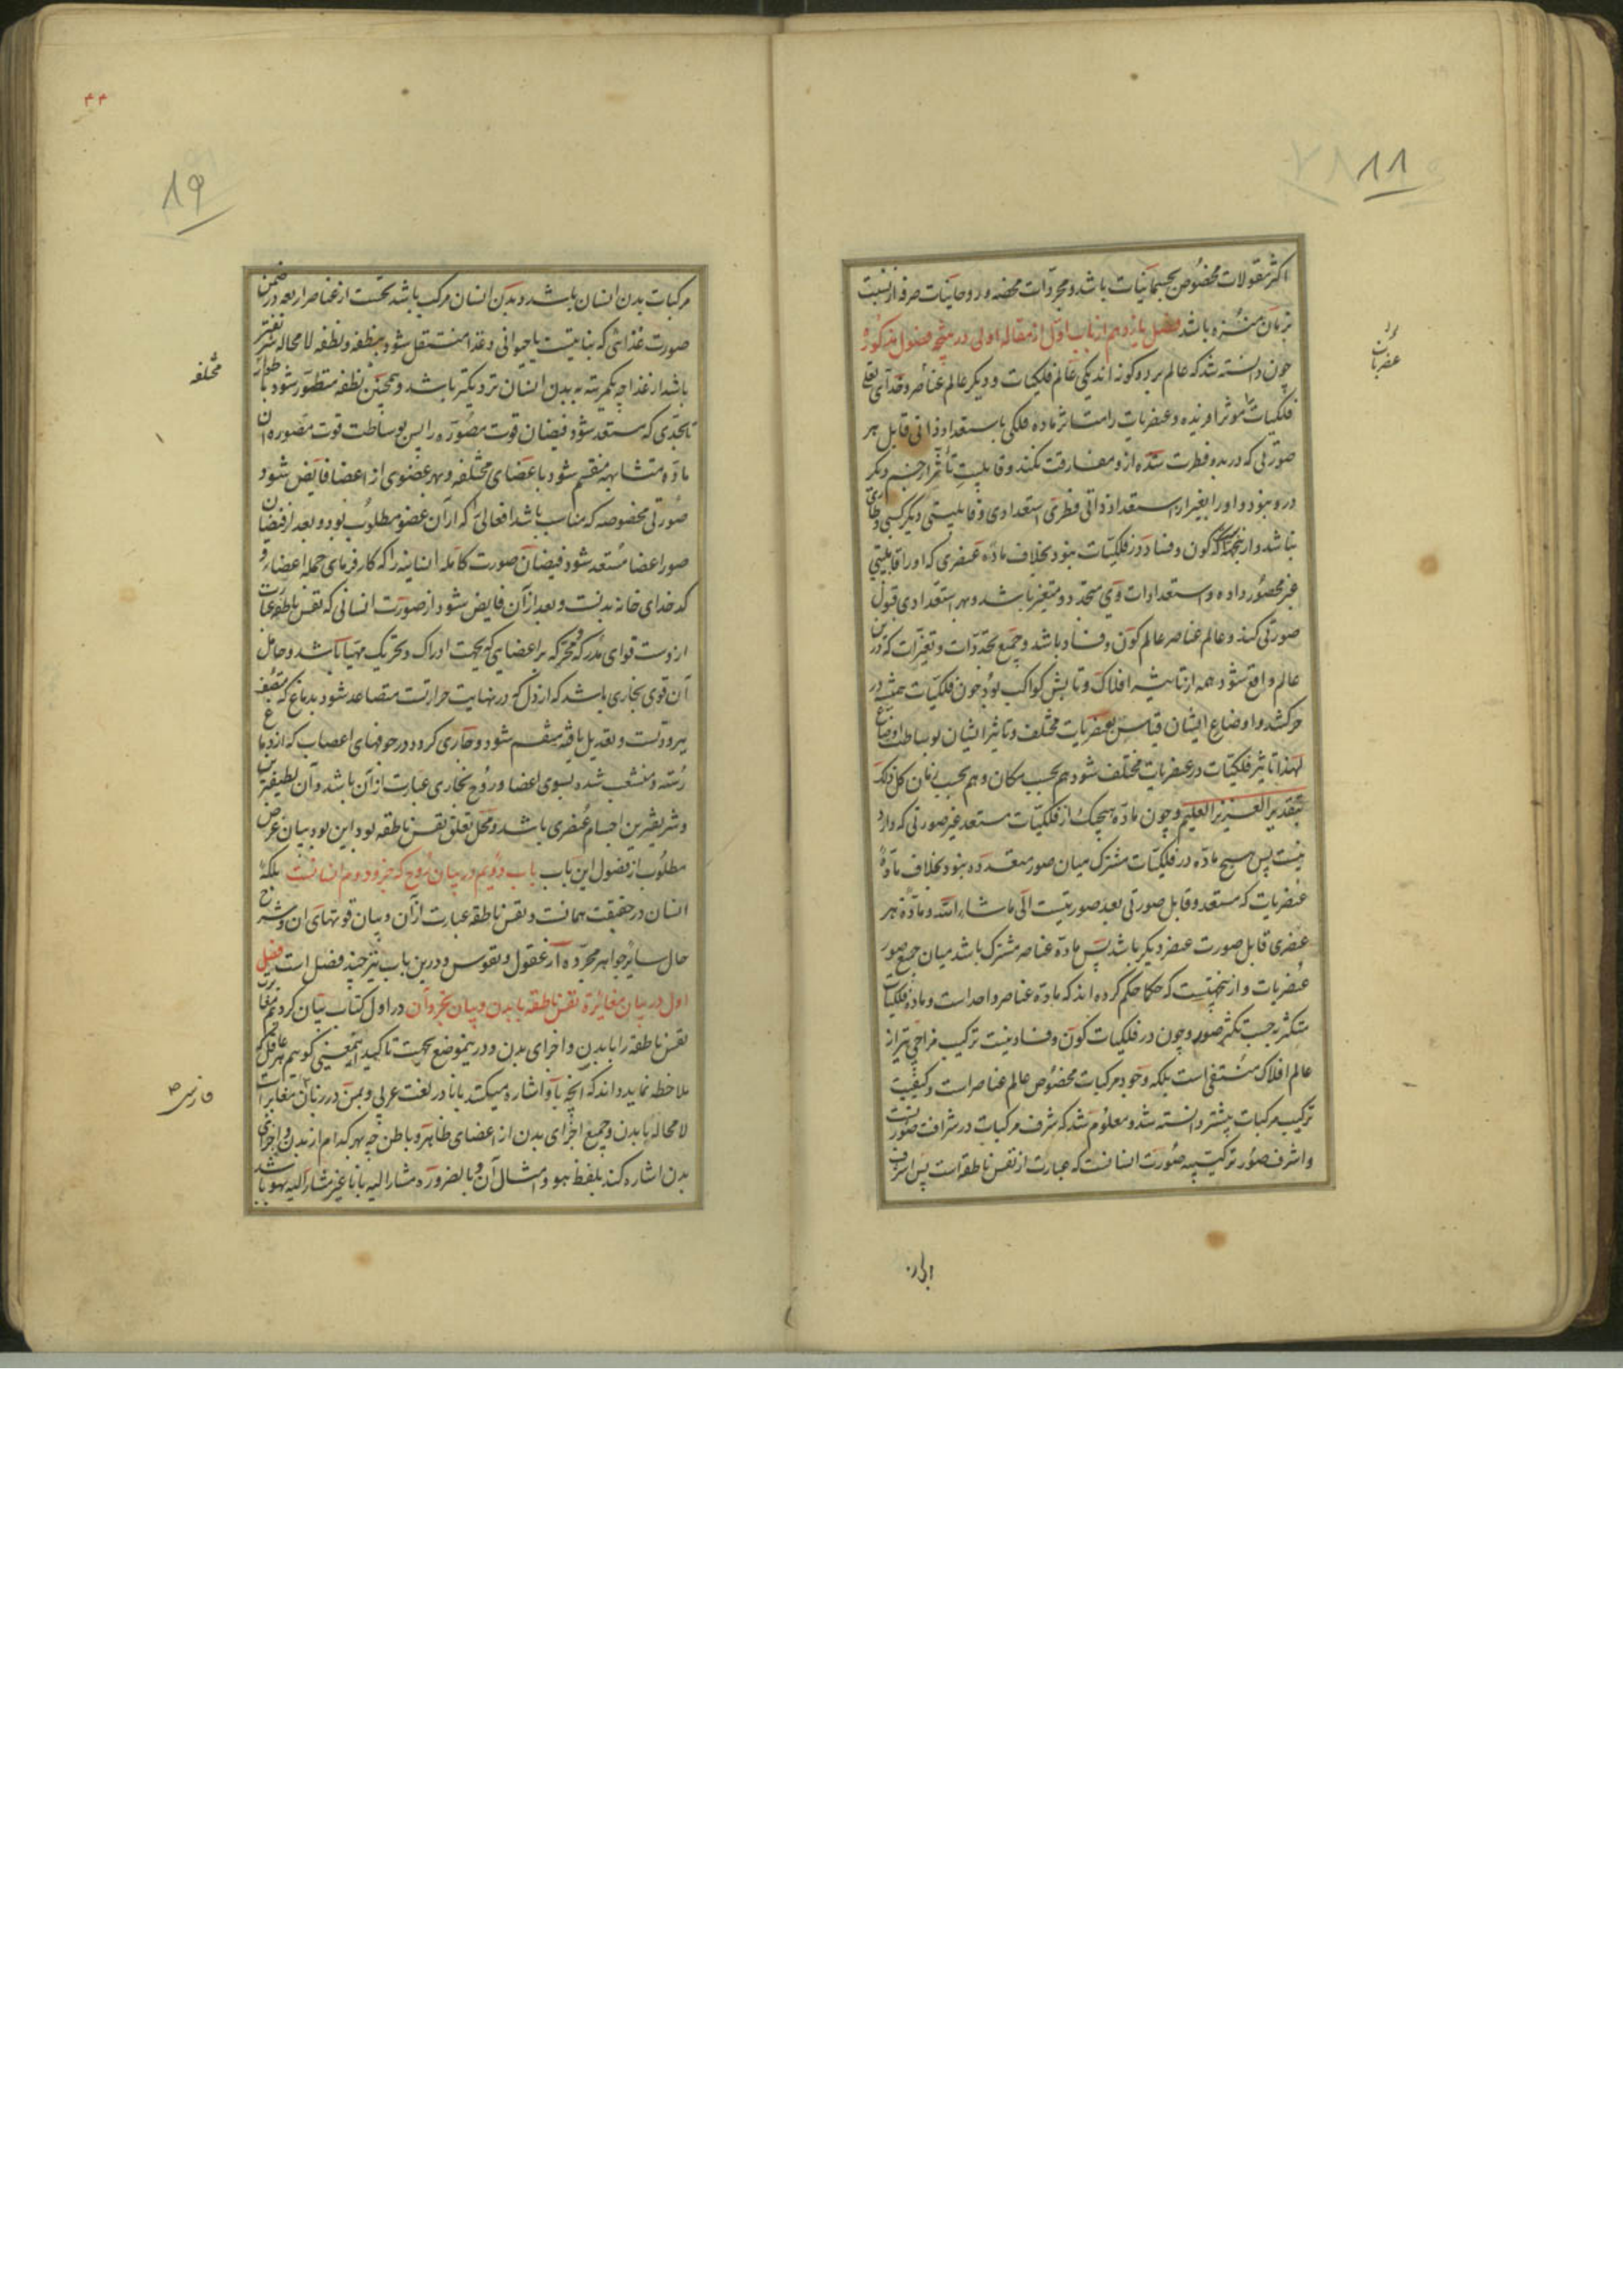 اکثر مقولات مخصوص بجسمانیات باشد و مجردات محضه و روحانیات صرفه از نسبت
بزمان منزه باشد فصل یازدهم از باب اول از مقاله اولی در نتیجه فصول مذکوره
چون دانسته شد که عالم بر دو گونه اند یکی عالم فلکیات و دیگر عالم عناصر و خدای تعالی
فلکیات را موثر آفریده و عنصریات را متاثر ماده فلکی باستعداد ذاتی قابل هر
صورتی که در بدو فطرت شده ازو مفارقت نکند و قابلیت تأثر از جسم دیگر
درو نبود و او را بغیر از استعداد ذاتی فطری استعدادی و قابلیتی دیگر کسبی و طاری
نباشد و ازینجهت کون و فساد در فلکیات نبود بخلاف ماده عنصری که او را قابلیتی
غیر محصور داده و استعدادات وی متجدد و متغیر باشد و بهر استعدادی قبول
صورتی کند و عالم عناصر عالم کون و فساد باشد و جمیع تجددات و تغیرات که درین
عالم واقع شود همه از تاثیر افلاک و تابش کواکب بود چون فلکیات همیشه در
حرکتند و اوضاع ایشان قیاس بعنصریات مختلف و تاثیر ایشان بوساطت اوضاع
لهذا تاثیر فلکیات در عنصریات مختلف شود هم بحسب مکان و هم بحسب زمان کل ذلک
بتقدیر العزیز العلیم و چون ماده هیچیک از فلکیات مستعد غیر صورتی که دارد
نیست پس هیچ ماده در فلکیات مشترک میان صور متعدده نبود بخلاف ماده
عنصریات که مستعد و قابل صورتی بعد صورتیست الی ما شاء الله و ماده هر
عنصری قابل صورت عنصر دیگر باشد پس ماده عناصر مشترک باشد میان جمیع صور
عنصریات و ازینجهتست که حکما حکم کرده اند که ماده عناصر واحد است و ماده فلکیات
متکثر بحسب تکثر صور و چون در فلکیات کون و فساد نیست ترکیب مزاجی نیز از
عالم افلاک منتفی است بلکه وجود مرکبات مخصوص عالم عناصر است و کیفیت
ترکیب مرکبات پیشتر دانسته شد و معلوم شد که شرف مرکبات در شرافت صورتست
و اشرف صور ترکیبیه صورت انسانست که عبارت از نفس ناطقه است پس اشرف
عنصریات
۱۸
۱۹
۴۴
مرکبات بدن انسان باشد و بدن انسان مرکب باشد نخست از عناصر اربعه در ضمن
صورت غذائی که نباتیست یا حیوانی و غذا منتقل شود بنطفه و نطفه لا محاله متغیر
باشد از غذا چه یکمرتبه ببدن انسان نزدیکتر باشد و همچنین نطفه متطور شود باطوار
تا بحدی که مستعد شود فیضان قوت مصوره را پس بوساطت قوت مصوره آن
ماده متشابهه منقسم شود باعضای مختلفه و بهر عضوی از اعضا فایض شود
صورتی مخصوصه که مناسب باشد افعالی که از آن عضو مطلوب بود و بعد از فیضان
صور اعضا مستعد شود فیضان صورت کامله انسانیه را که کارفرمای جمله اعضا و
کدخدای خانه بدنست و بعد از آن فایض شود از صورت انسانی که نفس ناطقه عبارت
ازوست قوای مدرکه و محرکه بر اعضایی که بجهت ادراک و تحریک مهیا باشد و حامل
آن قوی بخاری باشد که از دل که در نهایت حرارتست متصاعد شود بدماغ که متصف
ببرودتست و تعدیل یافته منقسم شود و جاری گردد در جوفهای اعصاب که از دماغ
رسته و منشعب شده بسوی اعضا و روح بخاری عبارت از آن باشد و آن لطیفترین
و شریفترین اجسام عنصری باشد و محل تعلق نفس ناطقه بود این بود بیان غرض
مطلوب از فصول این باب باب دویم در بیان روح که جزو دوم انسانست بلکه
انسان در حقیقت همانست و نفس ناطقه عبارت از آن و بیان قوتهای آن و شرح
حال سایر جواهر مجرده از عقول و نفوس و درین باب نیز چند فصل است فصل
اول در بیان مغایرة نفس ناطقه با بدن و بیان تجرد آن در اول کتاب بیان کردیم مغایرت
نفس ناطقه را با بدن و اجزای بدن و درینموضع بجهت تاکید اینمعنی گوییم هر عاقل که
ملاحظه نماید داند که آنچه باو اشاره میکند بانا در لغت عربی و بمن در زبان مغایر است
لا محاله با بدن و جمیع اجزای بدن از اعضای ظاهره و باطن چه بهر کدام از بدن و اجزای
بدن اشاره کند بلفظ هو و امثال آن و بالضروره مشار الیه بانا غیر مشار الیه بهو باشد
مختلفه
فارسی